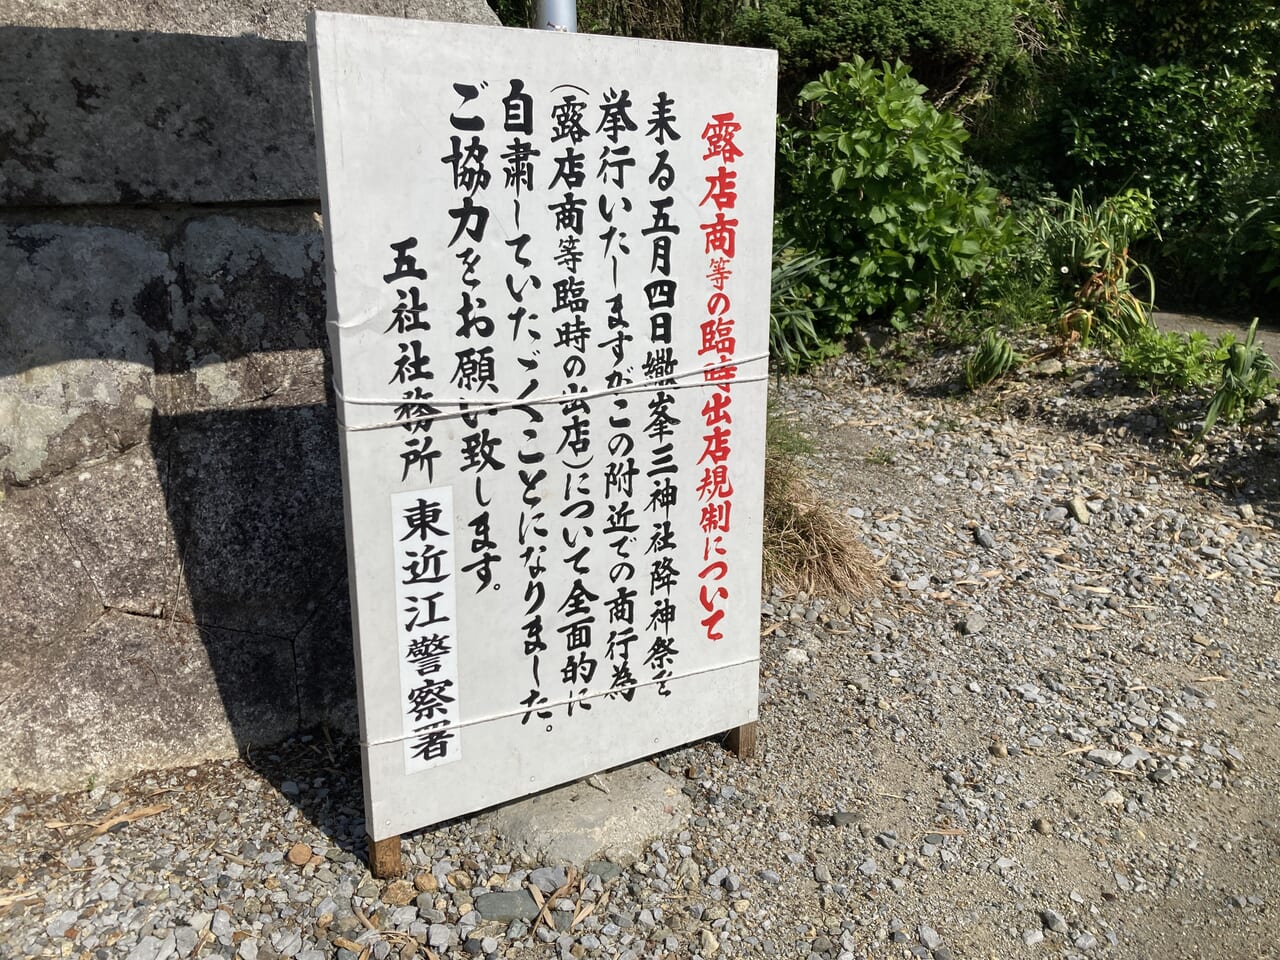 露店商等の臨時出店規制について
来る五月四日繖峯三神社降神祭を
挙行いたしますがこの附近での商行為
(露店商等臨時の出店)について全面的に
自粛していたゞくことになりました。
ご協力をお願い致します。
五社社務所
東近江警察署